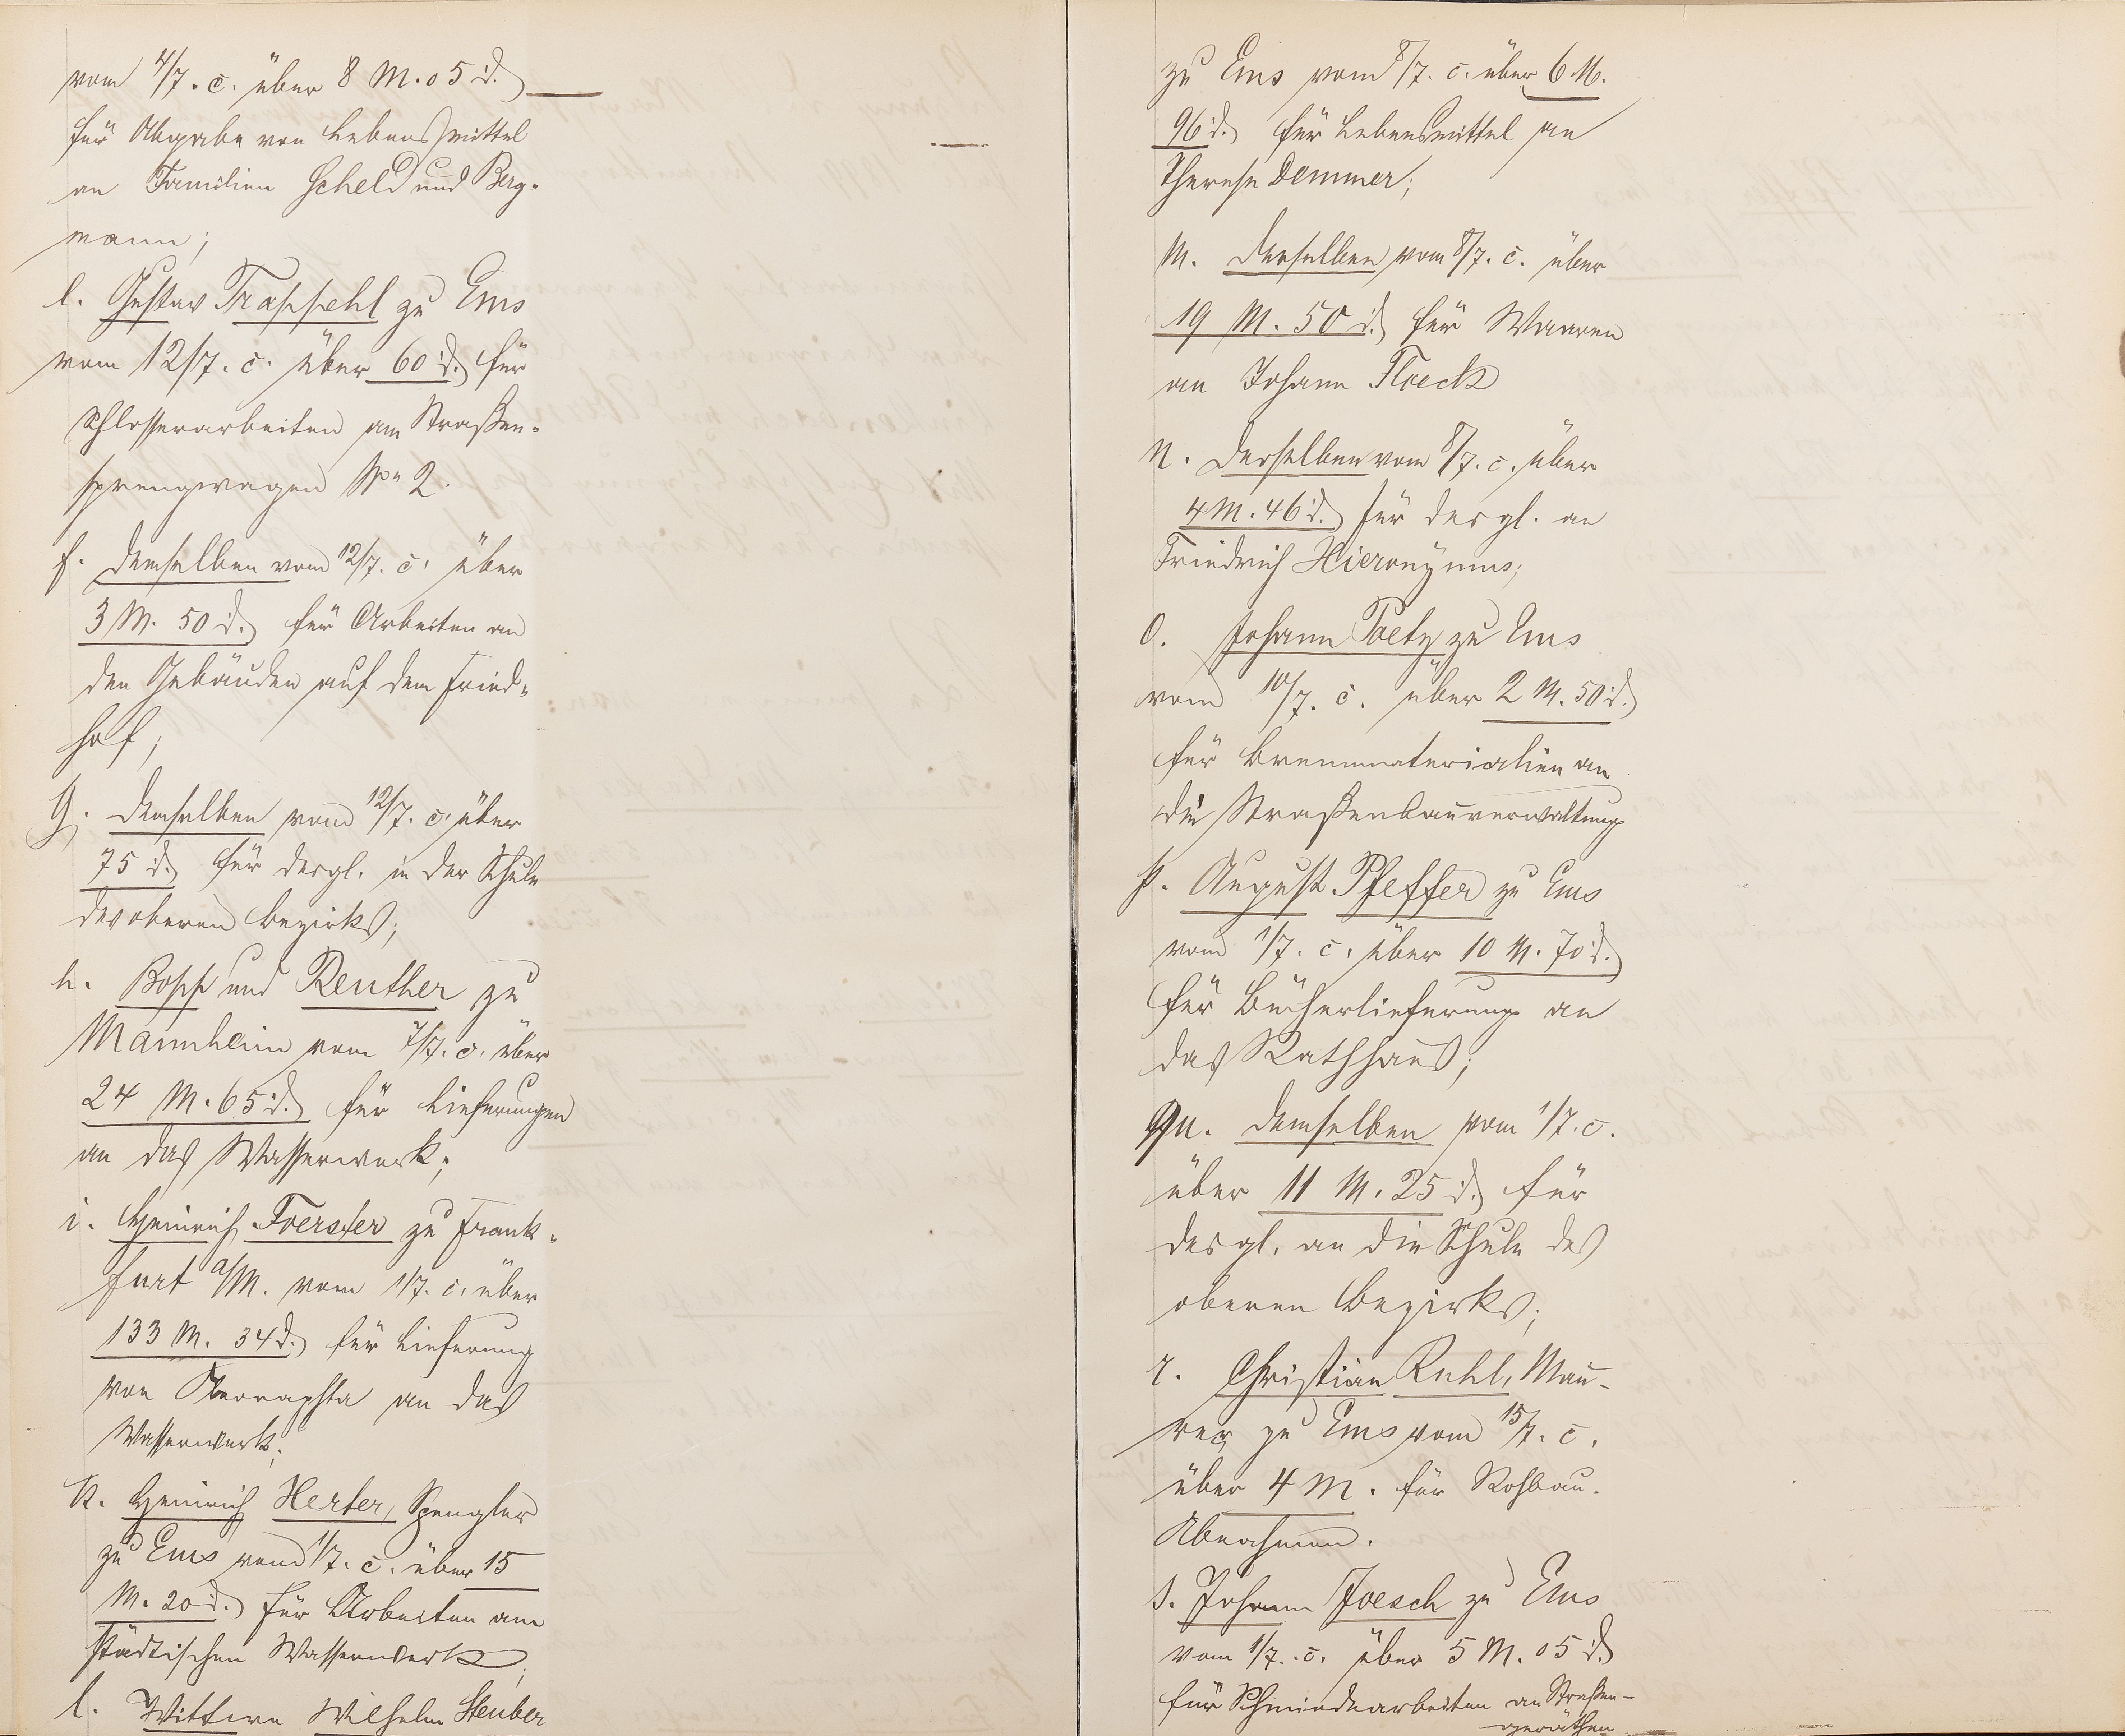 vom 4/7. c. über 8 M. 05 d.
für Abgabe von Lebensmittel
an Familien Scheld und Berg-
mann;
e. Gustav Trapphehl zu Ems
vom 12/7. c. über 60 d. für
Schlosserarbeiten am Straßen-
sprengwagen No 2.
f. demselben vom 12/7. c. über
3 M. 50 d. für Arbeiten an
den Gebäuden auf dem Fried-
hof;
g. demselben vom 12/7. c. über
75 d. für desgl. in der Schule
des oberen Bezirks;
h. Bopp und Reuther zu
Mannheim vom 7/7. c. über
24 M. 65 d. für Lieferungen
an das Wasserwerk;
i. Heinrich Foerster zu Frank-
furt a/M. vom 1/7. c. über
133 M. 34 d. für Lieferung
von an das
Wasserwerk;
k. Heinrich Herter, Spengler
zu Ems vom 1/7. c. über 15
M. 20 d. für Arbeiten am
städtischen Wasserwerk;
l. Wittwe Wilhelm Steuber
zu Ems vom 8/7. c. über 6 M.
96 d. für Lebensmittel an
Therese Demmer;
m. derselben vom 8/7. c. über
19 M. 50 d. für Waaren
an Johann Floeck
n. derselben vom 8/7. c. über
4 M. 46 d. für desgl. an
Friedrich Hieronymus;
o. Johann Poetz zu Ems
vom 10/7. c. über 2 M. 50 d.
für Brennmaterialien an
die Straßenbauverwaltung
p. August Pfeffer zu Ems
vom 1/7. c. über 10 M. 70 d.
für Bücherlieferung an
das Rathhaus;
qu. demselben vom 1/7. c.
über 11 M. 25 d. für
desgl. an die Schule des
oberen Bezirks;
r. Christian Ruhl, Mau-
rer zu Ems vom 15/7. c.
über 4 M. für Rohbau-
Abnahmen.
s. Johann Joesch zu Ems
vom 1/7. c. über 5 M. 05 d.
für Schmiedearbeiten an Straßen-
geräthen